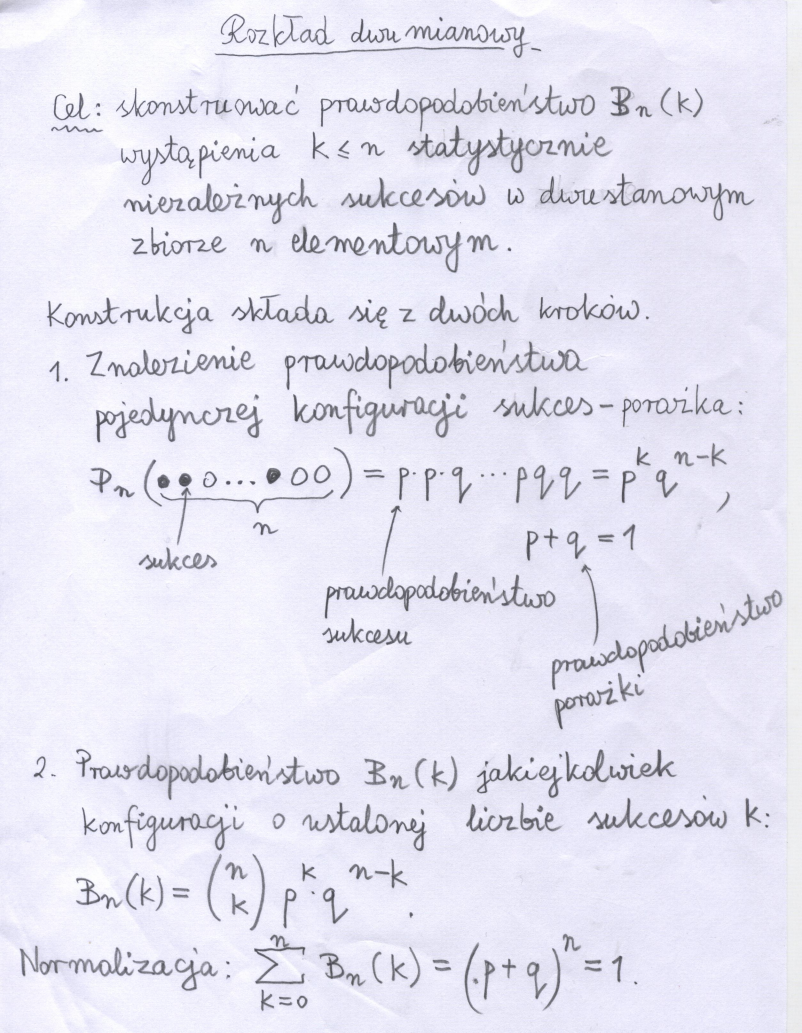 Rozkład dwumianowy
Cel: skonstruować prawdopodobieństwo Bn(k)
wystąpienia k ≤ n statystycznie
niezależnych sukcesów w dwustanowym
zbiorze n elementowym.
Konstrukcja składa się z dwóch kroków.
1. Znalezienie prawdopodobieństwa
pojedynczej konfiguracji sukces-porażka:
Pn(●●○...●○○) = p·p·q ··· pqq = p^k q^{n-k},
n
p+q=1
sukces
prawdopodobieństwo
sukcesu
prawdopodobieństwo
porażki
2. Prawdopodobieństwo Bn(k) jakiejkolwiek
konfiguracji o ustalonej liczbie sukcesów k:
Bn(k) = (n k) p^k · q^{n-k}.
Normalizacja: ∑_{k=0}^{n} Bn(k) = (p+q)^n = 1.